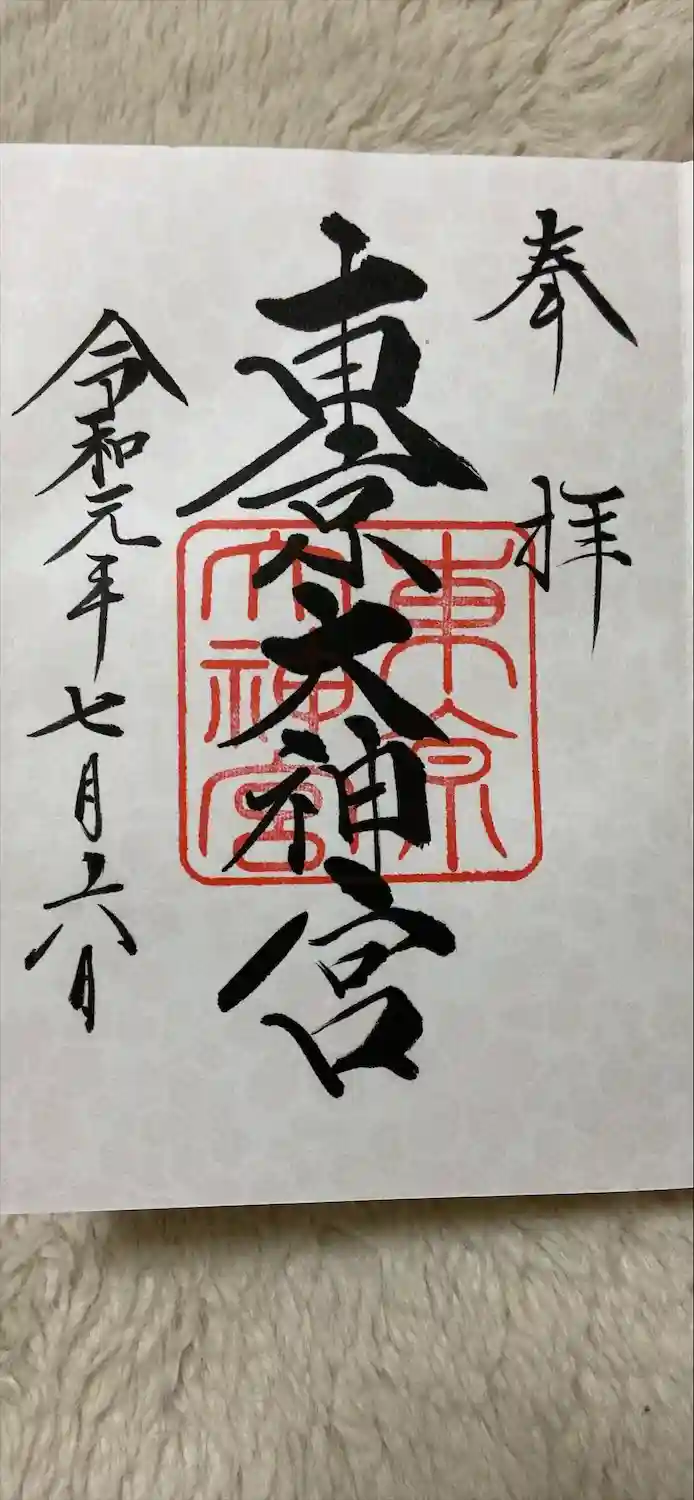 奉拝
東京大神宮
東京
大神宮
令和元年七月六日